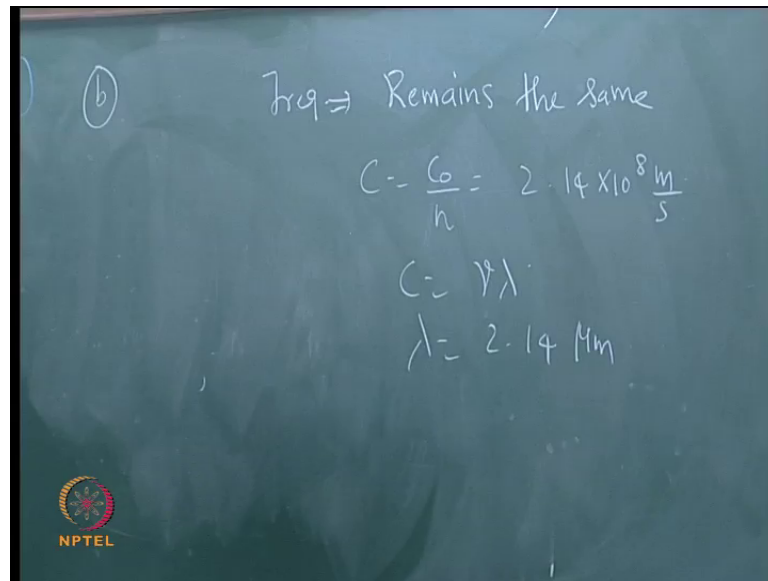 b Freq ⇒ Remains the same
C = C₀/n = 2.14 × 10⁸ m/s
C = νλ
λ = 2.14 μm
NPTEL